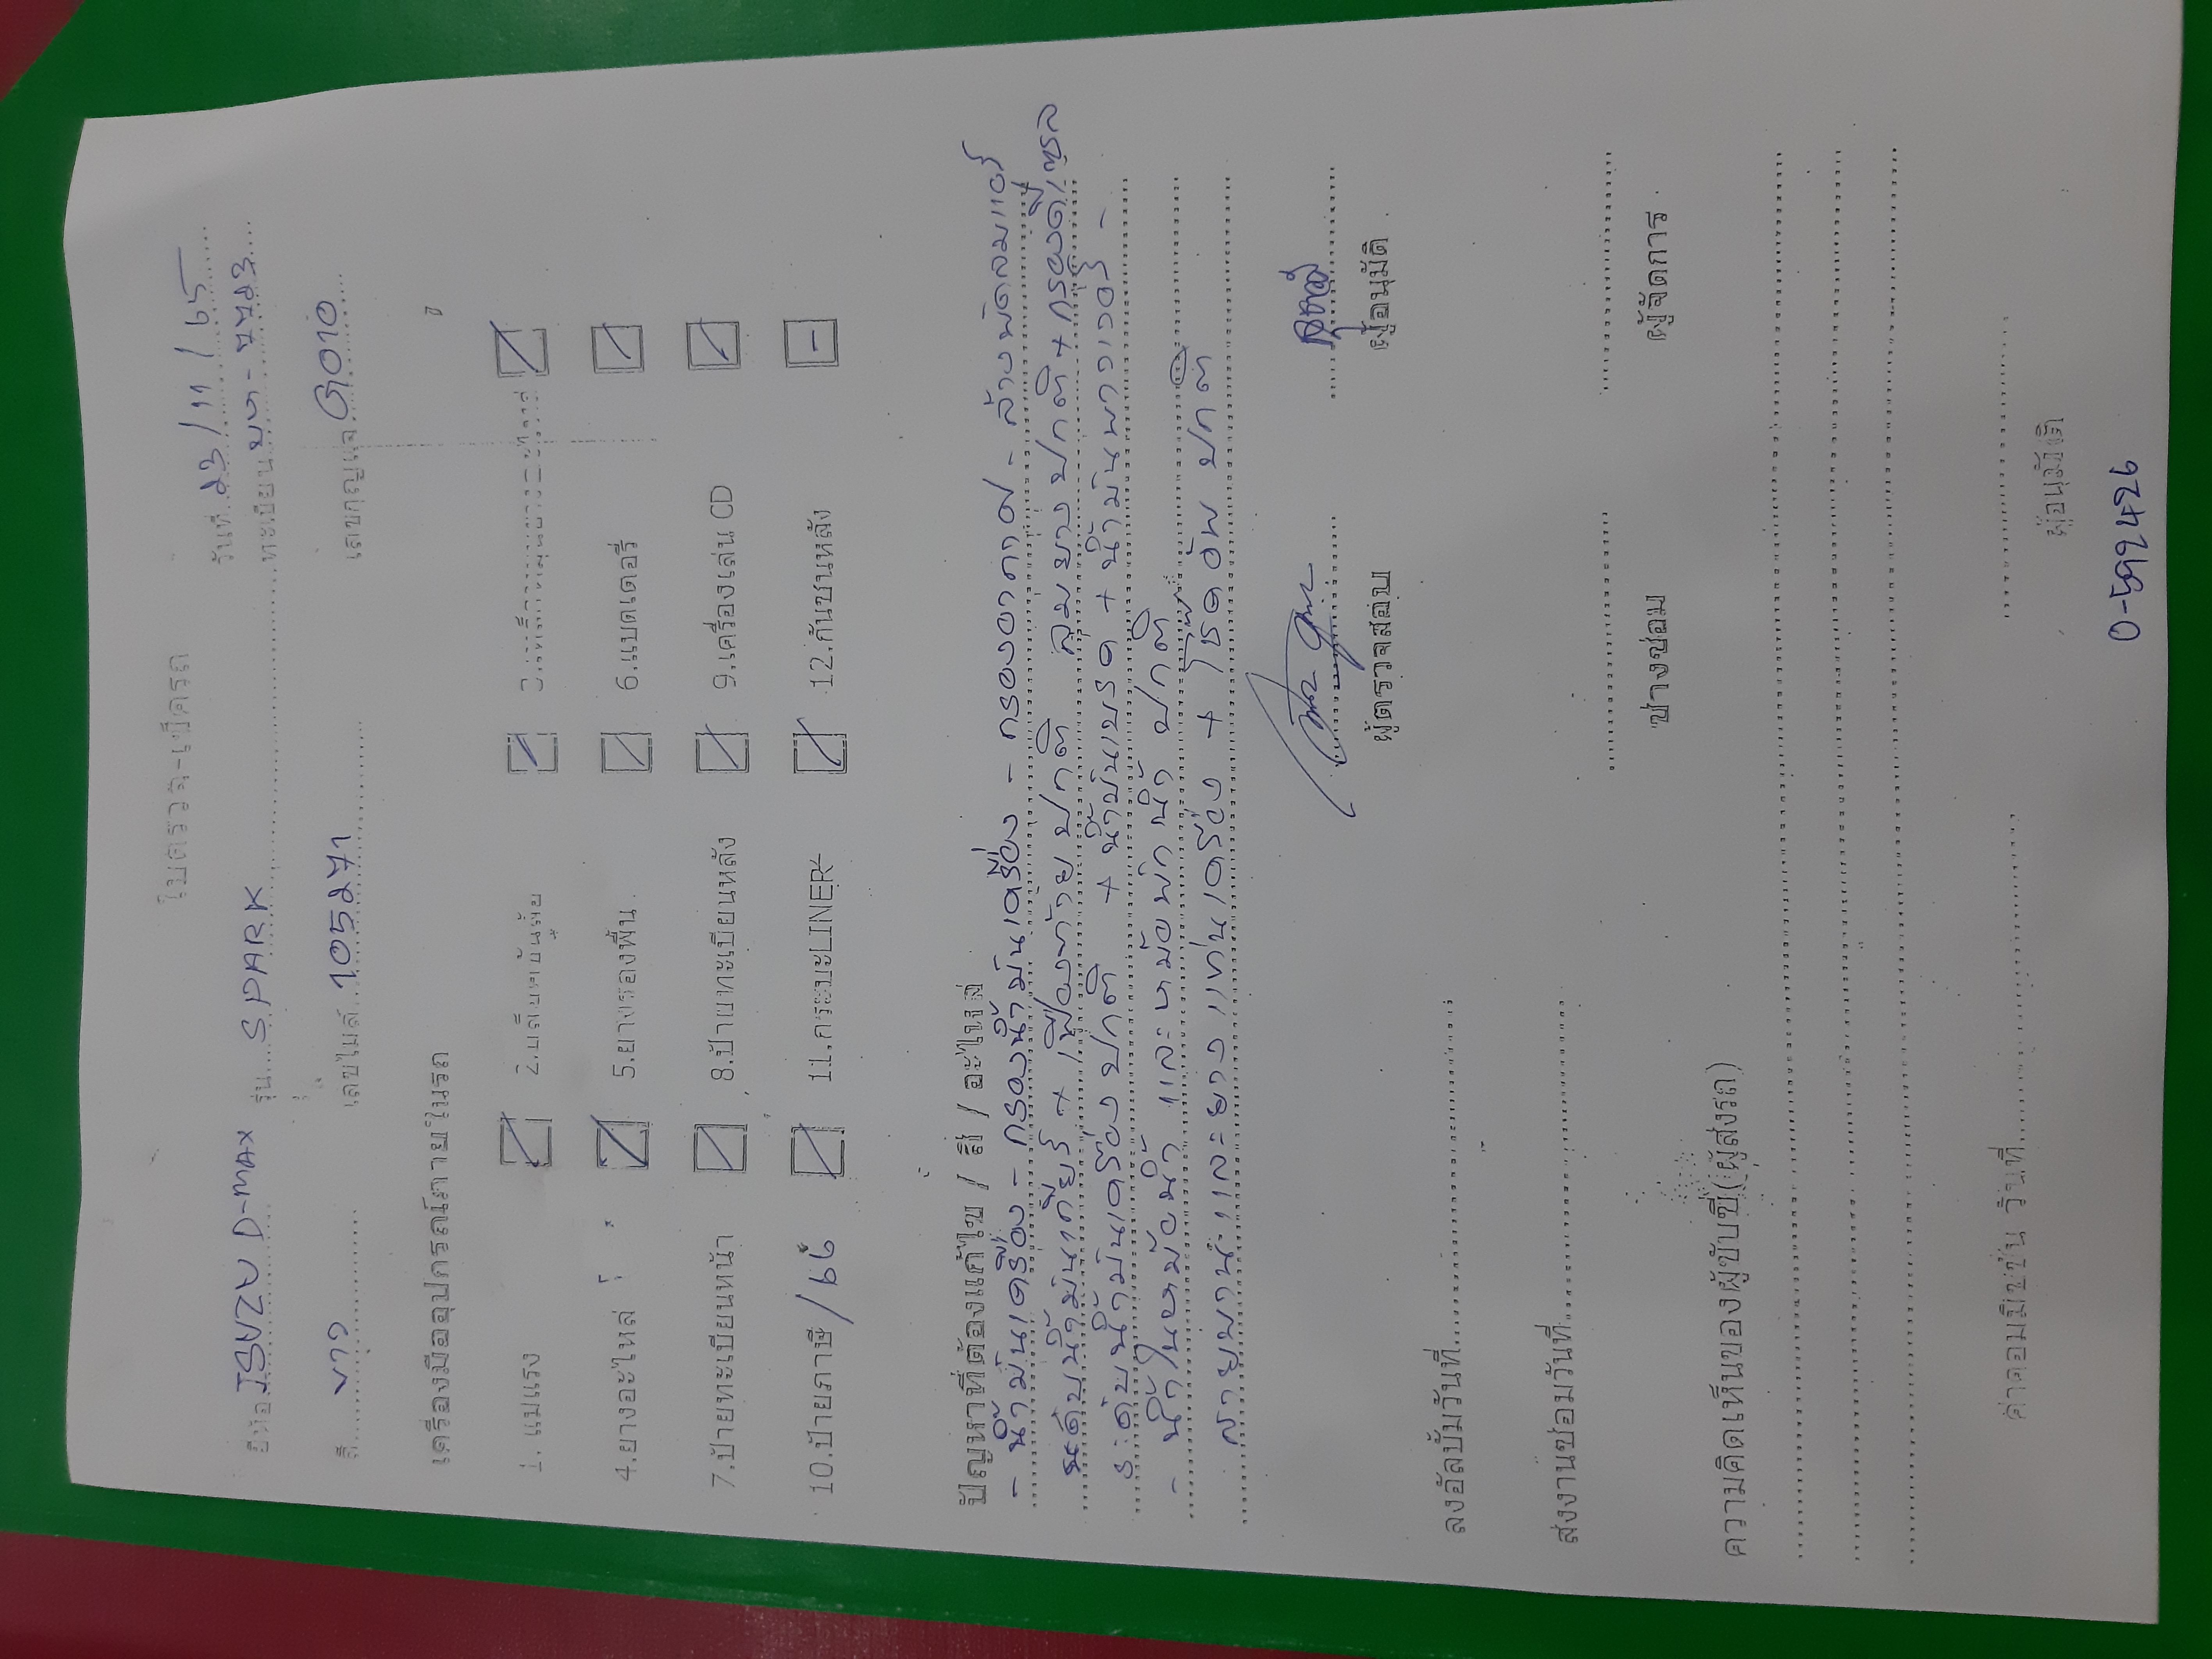 ใบตรวจ-เช็ครถ
วันที่ 23/11/65
ยี่ห้อ ISUZU D-max รุ่น S PARK ทะเบียน
สี ขาว เลขไมล์ 105271 เลขกุญแจ G010
เครื่องมืออุปกรณ์ภายในรถ
1. แม่แรง
4.ยางอะไหล่ 5.ยางรองพื้น 6.แบตเตอรี่
7.ป้ายทะเบียนหน้า 8.ป้ายทะเบียนหลัง 9.เครื่องเล่น CD
10.ป้ายภาษี /66 11.กระบะLINER 12.กันชนหลัง
ปัญหาที่ต้องแก้ไข / สี / อะไหล่
- น้ำมันเครื่อง - กรองน้ำมันเครื่อง - กรองอากาศ - ล้างพัดลมแอร์
ระดับน้ำมันเกียร์ + เฟืองท้าย ปกติ ลมยาง ปกติ + กรองดีเซล
ระดับน้ำมันเครื่อง ปกติ + น้ำมันเบรค + น้ำมันพาวเวอร์ -
- น้ำในหม้อน้ำ และ หม้อพักน้ำ ปกติ
สายพาน และ ยางแท่นเครื่อง + โช๊คอัพ ปกติ
ผู้ตรวจสอบ ผู้อนุมัติ
ลงอัลบั้มวันที่
ส่งงานซ่อมวันที่
ช่างซ่อม ผู้จัดการ
ความคิดเห็นของผู้ขับขี่(ผู้ส่งรถ)
ค่าคอมมิชชั่น วันที่
ผู้อนุมัติ